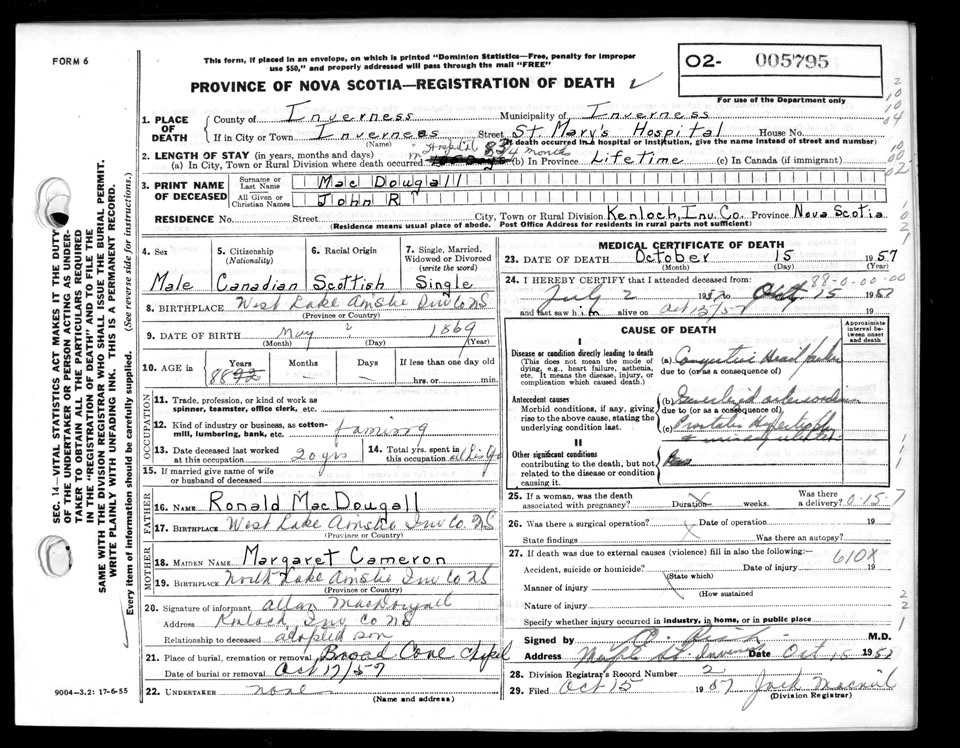 FORM 6
This form, if placed in an envelope, on which is printed "Dominion Statistics—Free, penalty for improper
use $50," and properly addressed will pass through the mail "FREE"
PROVINCE OF NOVA SCOTIA—REGISTRATION OF DEATH
02- 005795
For use of the Department only
1. PLACE OF DEATH
County of Inverness Municipality of Inverness
If in City or Town Inverness Street St Mary's Hospital House No.
(Name) (If death occurred in a hospital or institution, give the name instead of street and number)
2. LENGTH OF STAY (in years, months and days)
(a) In City, Town or Rural Division where death occurred (b) In Province Lifetime (c) In Canada (if immigrant)
3. PRINT NAME OF DECEASED
Surname or Last Name Mac Dougall
All Given or Christian Names John R
RESIDENCE No. Street City, Town or Rural Division Kenloch, Inv. Co. Province Nova Scotia
(Residence means usual place of abode. Post Office Address for residents in rural parts not sufficient)
4. Sex 5. Citizenship (Nationality) 6. Racial Origin 7. Single, Married, Widowed or Divorced (write the word)
Male Canadian Scottish Single
8. BIRTHPLACE West Lake Ainslie Inv Co NS
(Province or Country)
9. DATE OF BIRTH May 2 1869
(Month) (Day) (Year)
10. AGE in Years Months Days If less than one day old
88 hrs. or min.
OCCUPATION
11. Trade, profession, or kind of work as spinner, teamster, office clerk, etc.
12. Kind of industry or business, as cotton-mill, lumbering, bank, etc. farming
13. Date deceased last worked at this occupation 20 yrs 14. Total yrs. spent in this occupation all life
15. If married give name of wife or husband of deceased
FATHER
16. NAME Ronald MacDougall
17. BIRTHPLACE West Lake Ainslie Inv Co. NS
(Province or Country)
MOTHER
18. MAIDEN NAME Margaret Cameron
19. BIRTHPLACE North Lake Ainslie Inv Co NS
(Province or Country)
20. Signature of informant Allan MacDougall
Address Kenloch Inv Co NS
Relationship to deceased adopted son
21. Place of burial, cremation or removal Broad Cove Chapel
Date of burial or removal Oct 17/57
22. UNDERTAKER none
(Name and address)
MEDICAL CERTIFICATE OF DEATH
23. DATE OF DEATH October 15 1957
(Month) (Day) (Year)
24. I HEREBY CERTIFY that I attended deceased from: 88-0-00-00
July 2 1957 to Oct 15 1957
and last saw him alive on Oct 15/57 19
CAUSE OF DEATH
Approximate interval between onset and death
I
Disease or condition directly leading to death (a) Congestive Heart failure
(This does not mean the mode of dying, e.g., heart failure, asthenia, etc. It means the disease, injury, or complication which caused death.) due to (or as a consequence of)
Antecedent causes (b) Generalized arteriosclerosis
Morbid conditions, if any, giving rise to the above cause, stating the underlying condition last. due to (or as a consequence of)
(c) Prostatic Hypertrophy
II
Other significant conditions
contributing to the death, but not related to the disease or condition causing it.
25. If a woman, was the death associated with pregnancy? Duration weeks. Was there a delivery? 0-15-7
26. Was there a surgical operation? Date of operation 19
State findings Was there an autopsy?
27. If death was due to external causes (violence) fill in also the following:— 610X
Accident, suicide or homicide? Date of injury 19
(State which)
Manner of injury
(How sustained
Nature of injury
Specify whether injury occurred in industry, in home, or in public place
Signed by M.D.
Address Maple St. Inverness Date Oct 15 1957
28. Division Registrar's Record Number 2
29. Filed Oct 15 1957 Jack Macneil
(Division Registrar)
9004-3.2: 17-6-55
SEC. 14—VITAL STATISTICS ACT MAKES IT THE DUTY
OF THE UNDERTAKER OR PERSON ACTING AS UNDER-
TAKER TO OBTAIN ALL THE PARTICULARS REQUIRED
IN THE "REGISTRATION OF DEATH" AND TO FILE THE
SAME WITH THE DIVISION REGISTRAR WHO SHALL ISSUE THE BURIAL PERMIT.
WRITE PLAINLY WITH UNFADING INK. THIS IS A PERMANENT RECORD.
Every item of information should be carefully supplied. (See reverse side for instructions.)